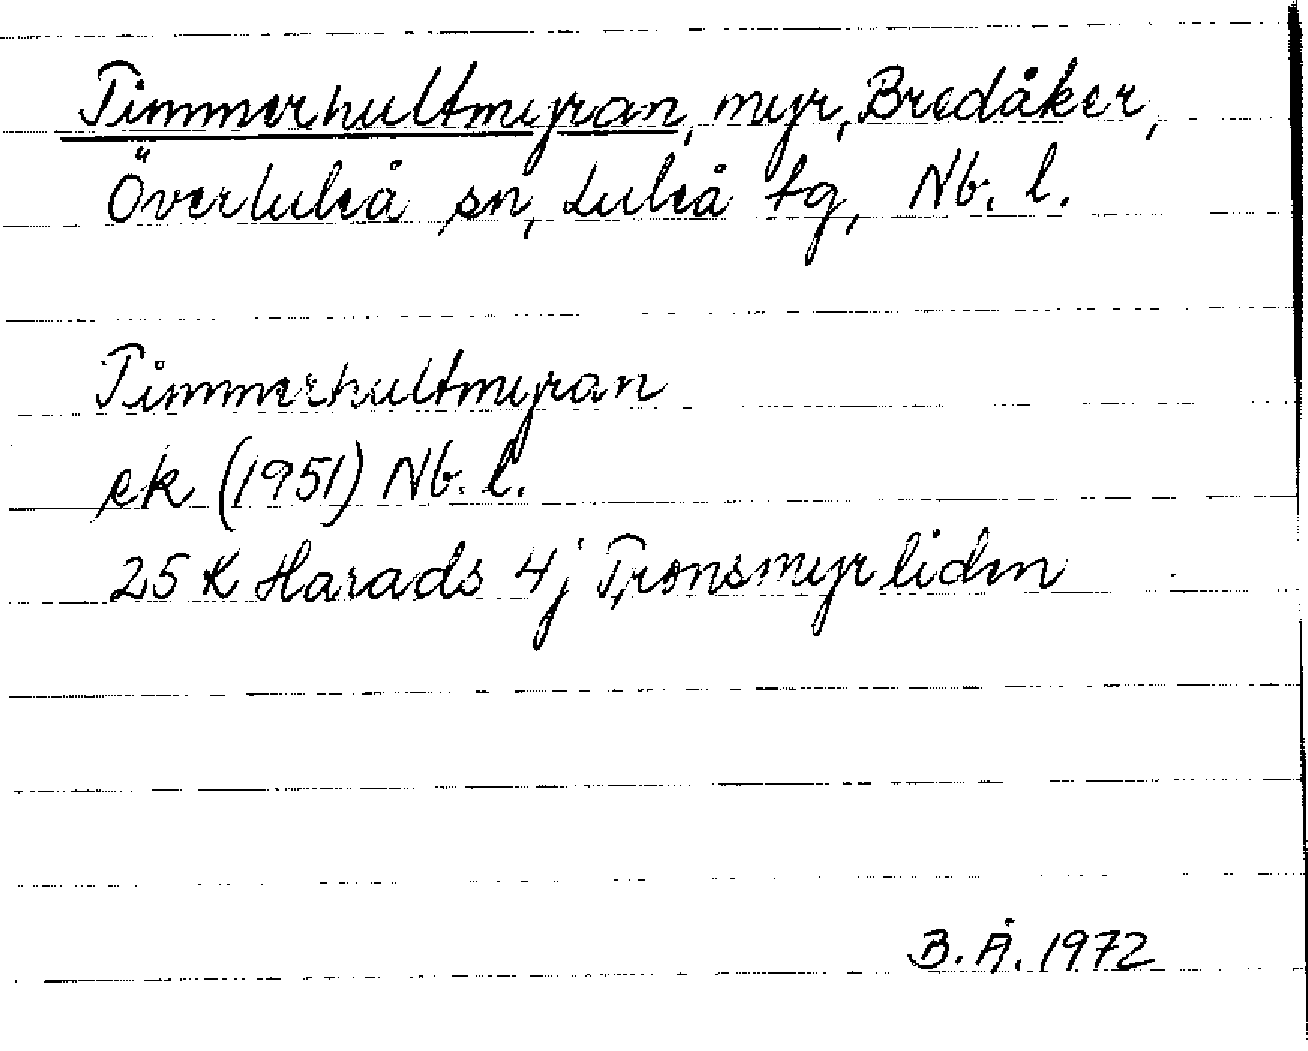 Timmerhultmyran, myr, Bredåker,
Överluleå sn, Luleå tg, Nb. l.
Timmerhultmyran
ek (1951) Nb. l.
25 K Harads 4j Tronsmyrliden
B. Å. 1972